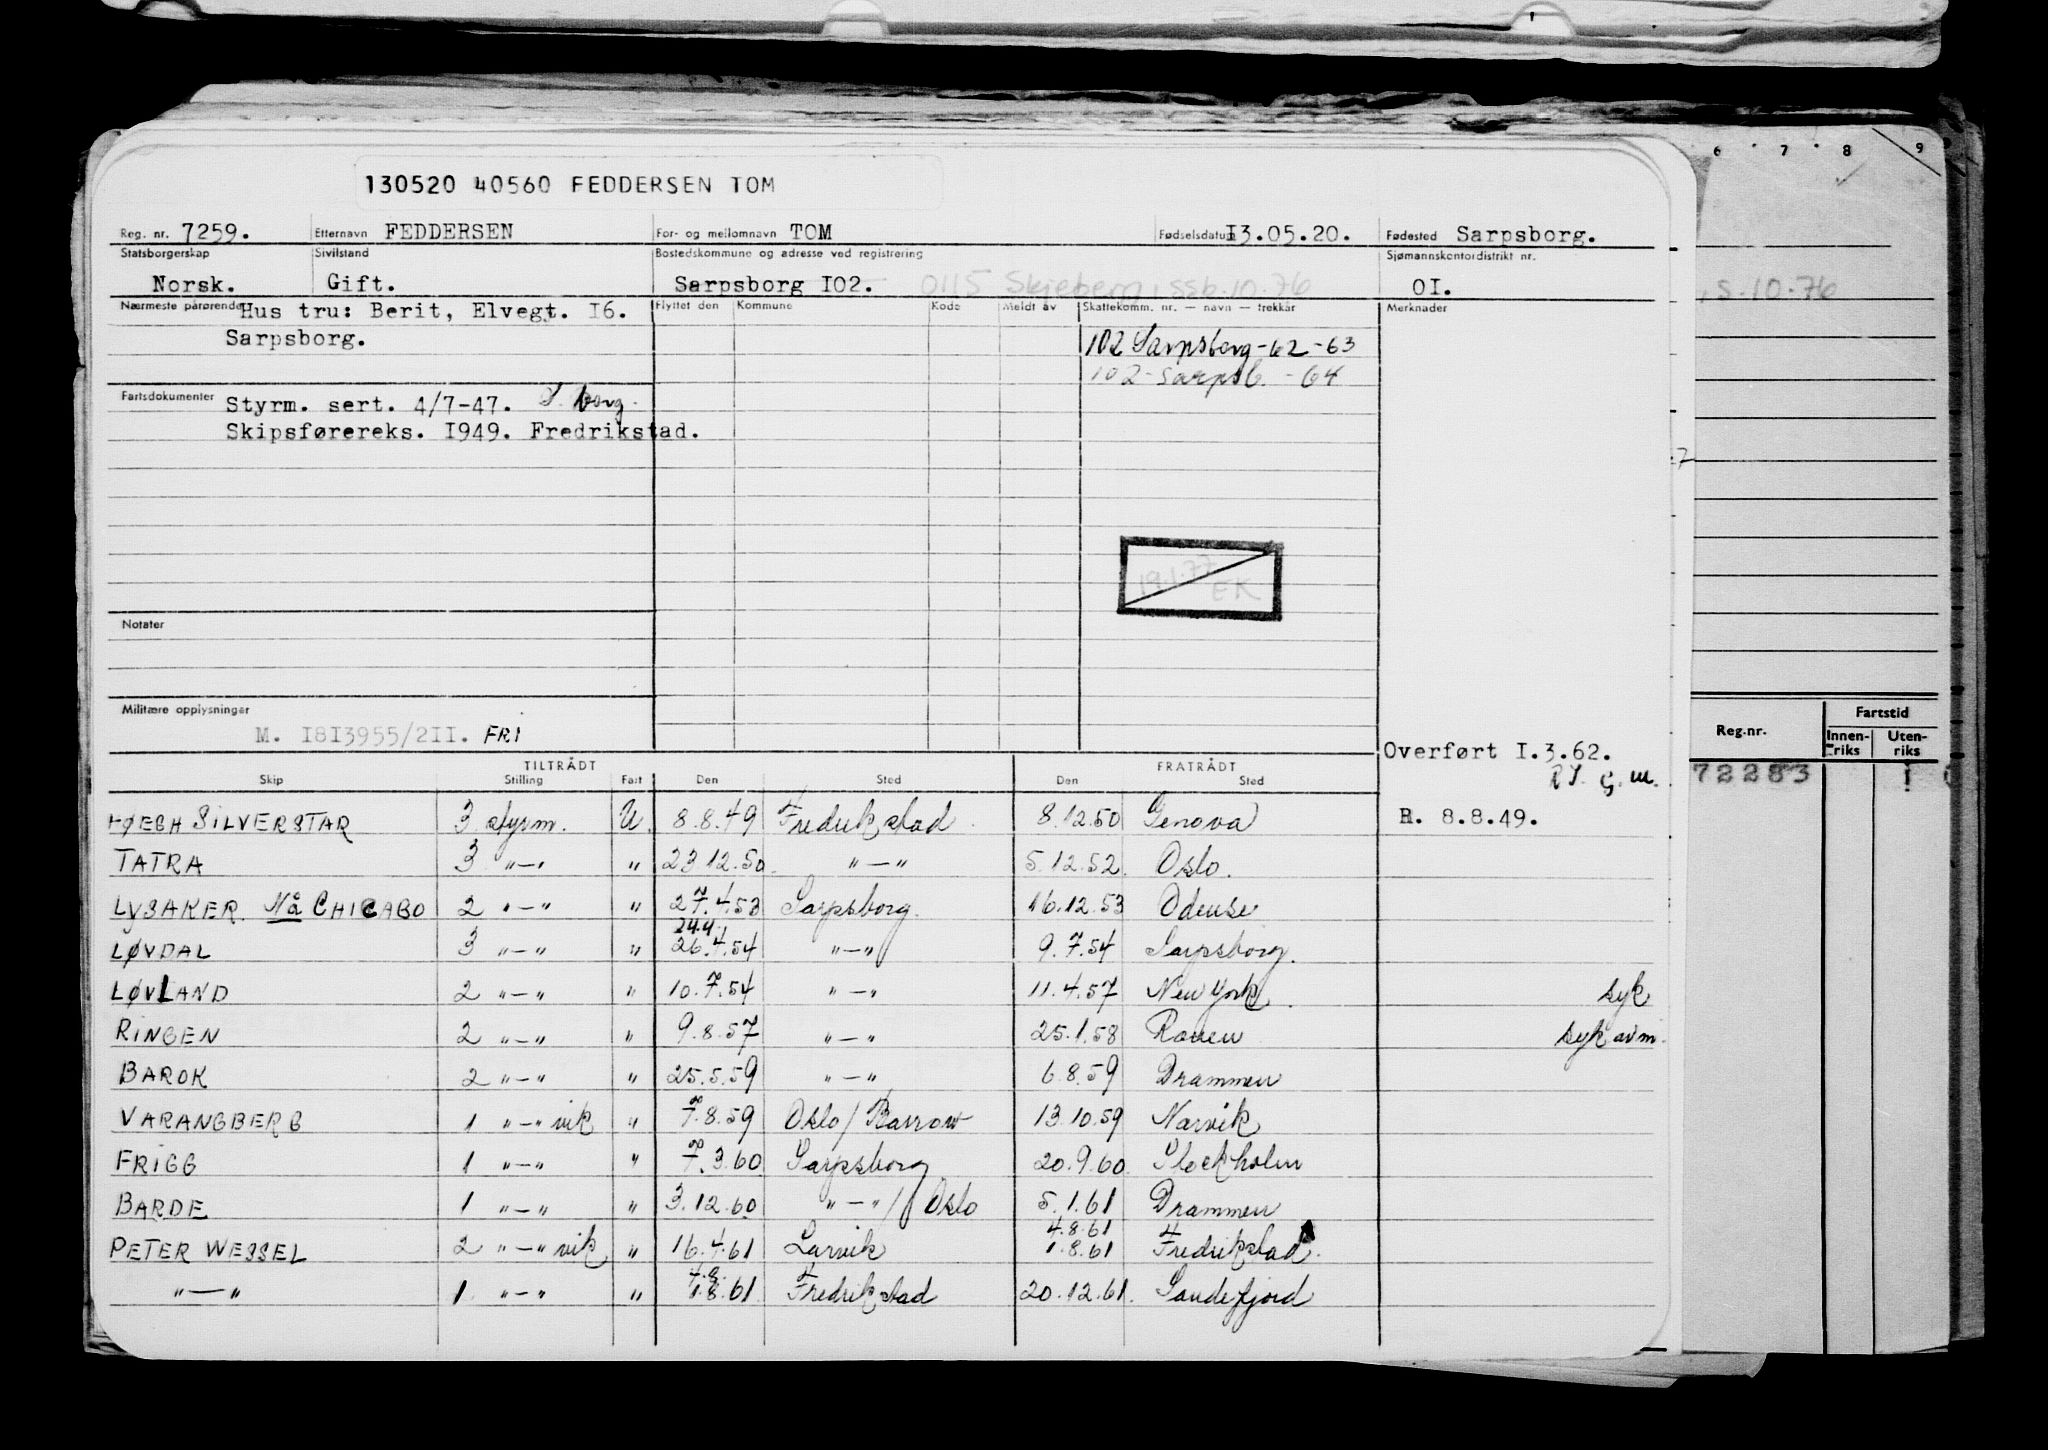 130520 40560 FEDDERSEN TOM
Reg. nr. 7259. Etternavn FEDDERSEN For- og mellomnavn TOM Fødselsdatum 13.05.20. Fødested Sarpsborg.
Statsborgerskap Sivilstand Bostedskommune og adresse ved registrering Sjømannskontordistrikt nr.
Norsk. Gift. Sarpsborg 102. 0115 Skjeberg, ssb.10.76 01. S.10-76
Nærmeste pårørende Hus tru: Berit, Elvegt. 16. Flyttet den Kommune Kode Meldt av Skattekomm. nr. — navn — trekkår Merknader
Sarpsborg. 102 Sarpsborg-62-63
102-Sarpsb. -64
Fartsdokumenter Styrm. sert. 4/7-47. S.borg.
Skipsførereks. 1949. Fredrikstad.
19.1.77
EK
Notater
Militære opplysninger
M. 1813955/211. FRI
Overført 1.3.62.
TILTRÅDT FRATRÅDT
Skip Stilling Fart Den Sted Den Sted
HØEGH SILVERSTAR 3 styrm. U. 8.8.49 Fredrikstad 8.12.50 Genova R. 8.8.49.
TATRA 3 "—" " 23.12.50. "—" 5.12.52. Oslo.
LYSAKER. Nå CHICAGO 2 "—" " 27.4.53 Sarpsborg. 16.12.53 Odense
24.4
LØVDAL 3 "—" " 26.4.54 "—" 9.7.54 Sarpsborg.
LØVLAND 2 "—" " 10.7.54 "—" 11.4.57 New York. syk
RINGEN 2 "—" " 9.8.57 "—" 25.1.58 Rouen syk avm.
BAROK 2 "—" " 25.5.59 "—" 6.8.59 Drammen
VARANGBERG 1 "—" vik " 7.8.59 Oslo/Barrow 13.10.59 Narvik
FRIGG 1 "—" " 7.3.60 Sarpsborg 20.9.60. Stockholm
BARDE 1 "—" " 3.12.60 "—"/ Oslo 5.1.61 Drammen
4.8.61
PETER WESSEL 2 "—" vik " 16.4.61 Larvik 1.8.61 Fredrikstad.
4.8.
"—" 1 "—" " 1.8.61 Fredrikstad 20.12.61. Sandefjord
6 7 8 9
Reg.nr. Fartstid
Innen-riks Uten-riks
72283 1